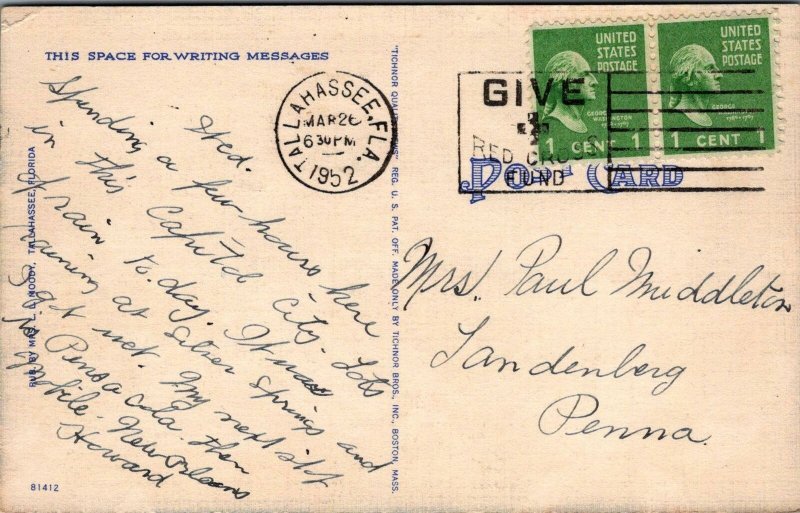 THIS SPACE FOR WRITING MESSAGES
Wed.
Spending a few hours here
in this Capitol City. Lots
of rain to-day. It was
raining at Silver Springs and
I got wet. My next stop
is Pensacola then
Mobile. New Orleans
Howard
PUB. BY MRS. L. L. MOODY, TALLAHASSEE, FLORIDA
81412
"TICHNOR QUALITY VIEWS" REG. U. S. PAT. OFF. MADE ONLY BY TICHNOR BROS., INC., BOSTON, MASS.
TALLAHASSEE, FLA.
MAR 26
630 PM
1952
GIVE
RED CROSS
FUND
UNITED
STATES
POSTAGE
GEORGE
WASHINGTON
1 CENT 1
UNITED
STATES
POSTAGE
GEORGE
WASHINGTON
1 CENT 1
POST CARD
Mrs. Paul Middleton
Landenberg
Penna.